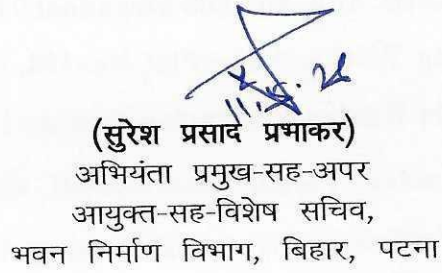 (सुरेश प्रसाद प्रभाकर)
अभियंता प्रमुख-सह-अपर
आयुक्त-सह-विशेष सचिव,
भवन निर्माण विभाग, बिहार, पटना